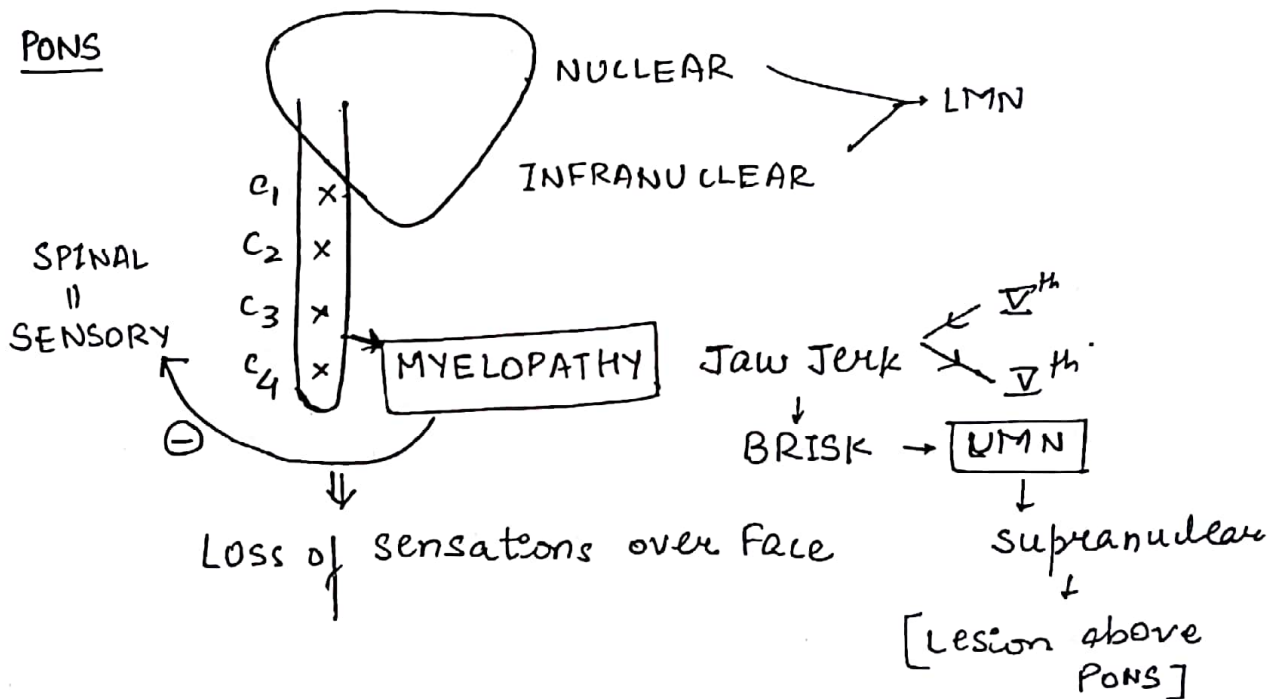 PONS
NUCLEAR
→ LMN
INFRANUCLEAR
C1 x
C2 x
C3 x
C4 x
SPINAL
=
SENSORY
→ MYELOPATHY
⊖
⇓
Loss of sensations over Face
Jaw Jerk
Vth
Vth
↓
BRISK → UMN
↓
supranuclear
↓
[Lesion above
PONS]